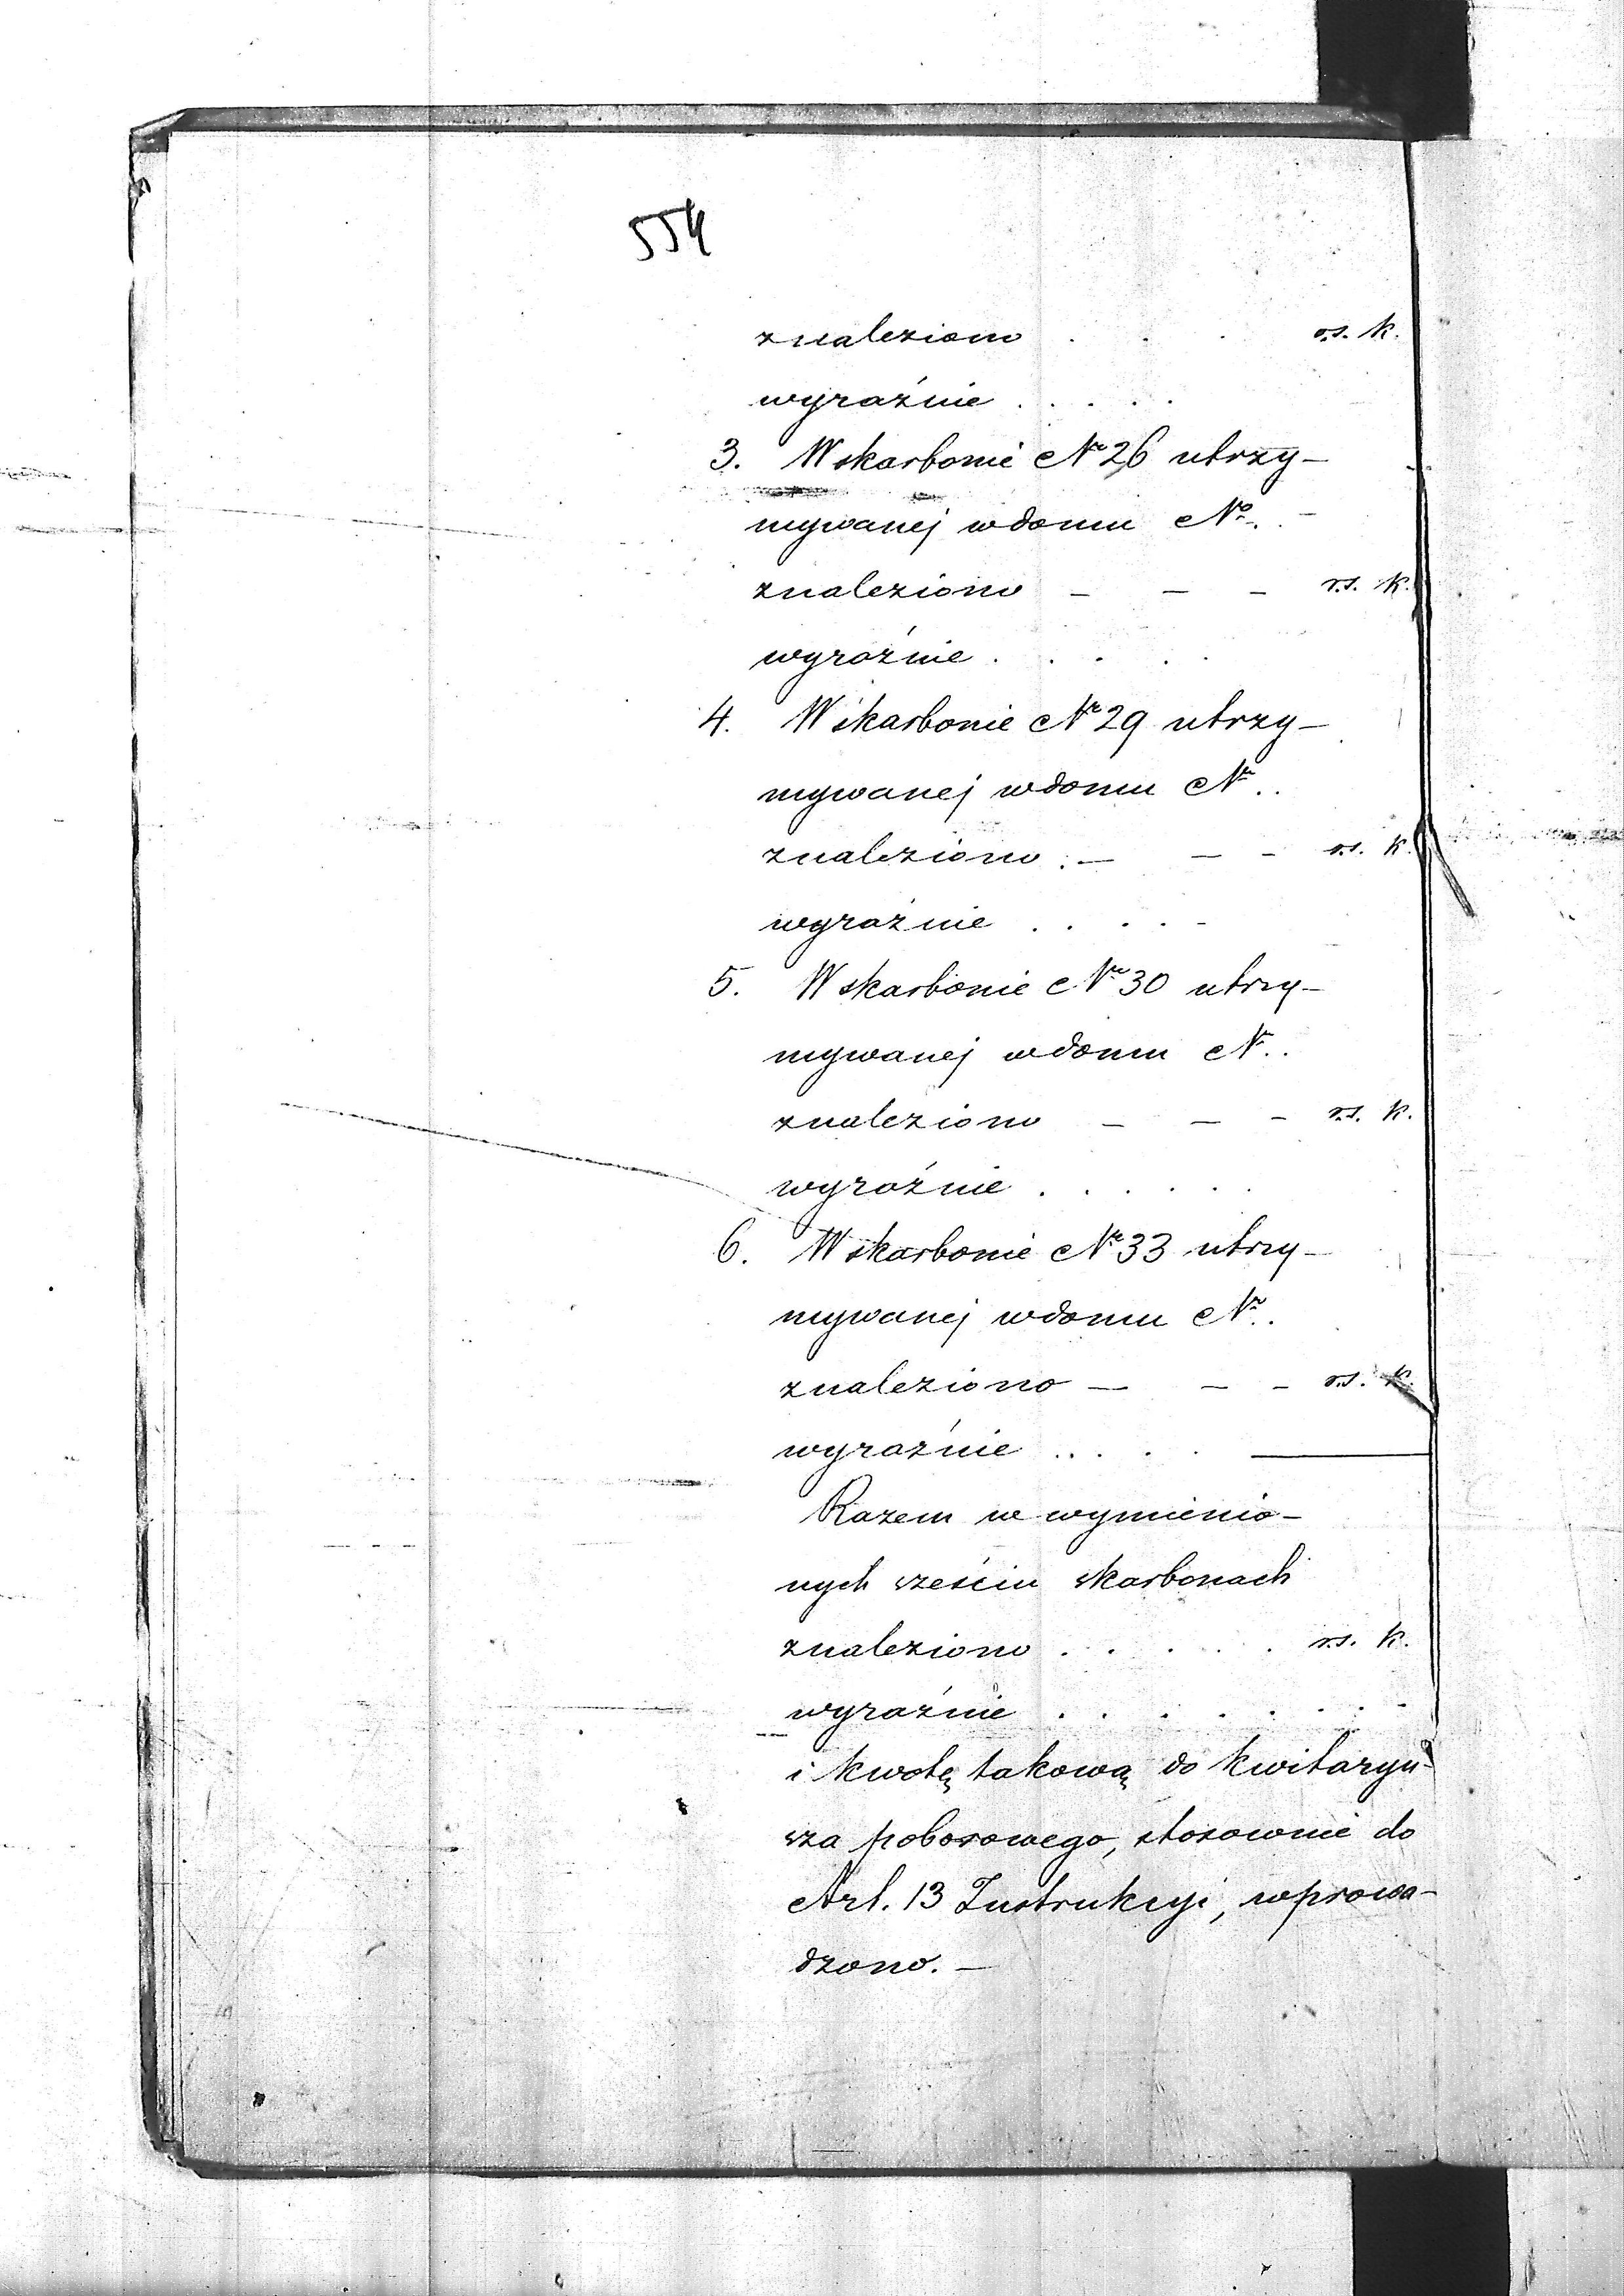 554
znaleziono . . . rs. k.
wyraźnie . . . . .
3. W skarbonie Nr 26 utrzy-
mywanej w domu No. . -
znaleziono - - - rs. k.
wyraźnie . . . . .
4. W skarbonie Nr 29 utrzy-
mywanej w domu Nr . .
znaleziono . - - - rs. k.
wyraźnie . . . . -
5. W skarbonie Nr 30 utrzy-
mywanej w domu Nr . .
znaleziono - - - rs. k.
wyraźnie . . . . . .
6. W skarbonie Nr 33 utrzy-
mywanej w domu Nr . .
znaleziono - - - rs. k.
wyraźnie . . . .
Razem w wymienio-
nych sześciu skarbonach
znaleziono . . . . . rs. k.
wyraźnie . . . . . . .
i kwotę takową do kwitaryu-
sza poborowego, stosownie do
Art. 13 Instrukcyi, wprowa-
dzono. -